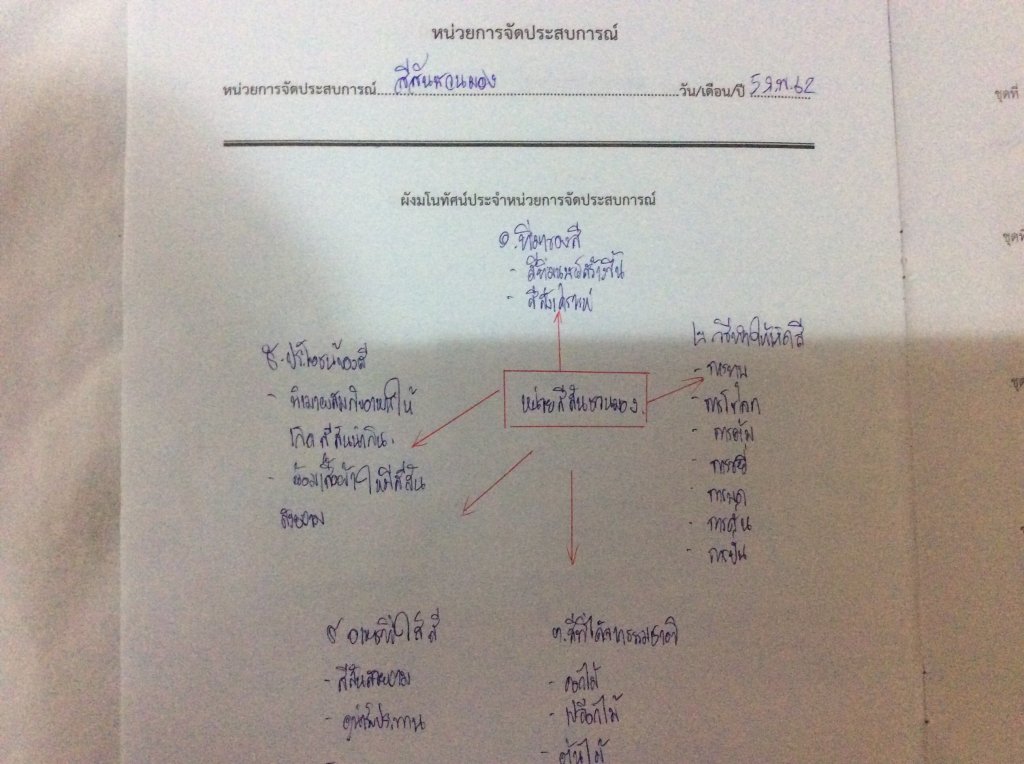 หน่วยการจัดประสบการณ์
หน่วยการจัดประสบการณ์ สีสันชวนมอง วัน/เดือน/ปี 5 62
ชุดที่
ผังมโนทัศน์ประจำหน่วยการจัดประสบการณ์
๑. ที่มาของสี
- สีที่มนุษย์สร้างขึ้น
- สีสังเคราะห์
๒. วิธีทำให้เกิดสี
-
- การโขลก
- การต้ม
- การขยี้
- การบด
- การคั้น
-
หน่วยสีสันชวนมอง
๕. ประโยชน์ของสี
- นำมาผสมกับอาหารให้
เกิดสีสันน่ากิน
- ย้อมเสื้อผ้าให้มีสีสัน
สวยงาม
๔ อาหารที่ใส่สี
- สีสันสวยงาม
- รับประทาน
๓. สีที่ได้จากธรรมชาติ
- ดอกไม้
- เปลือกไม้
- ต้นไม้